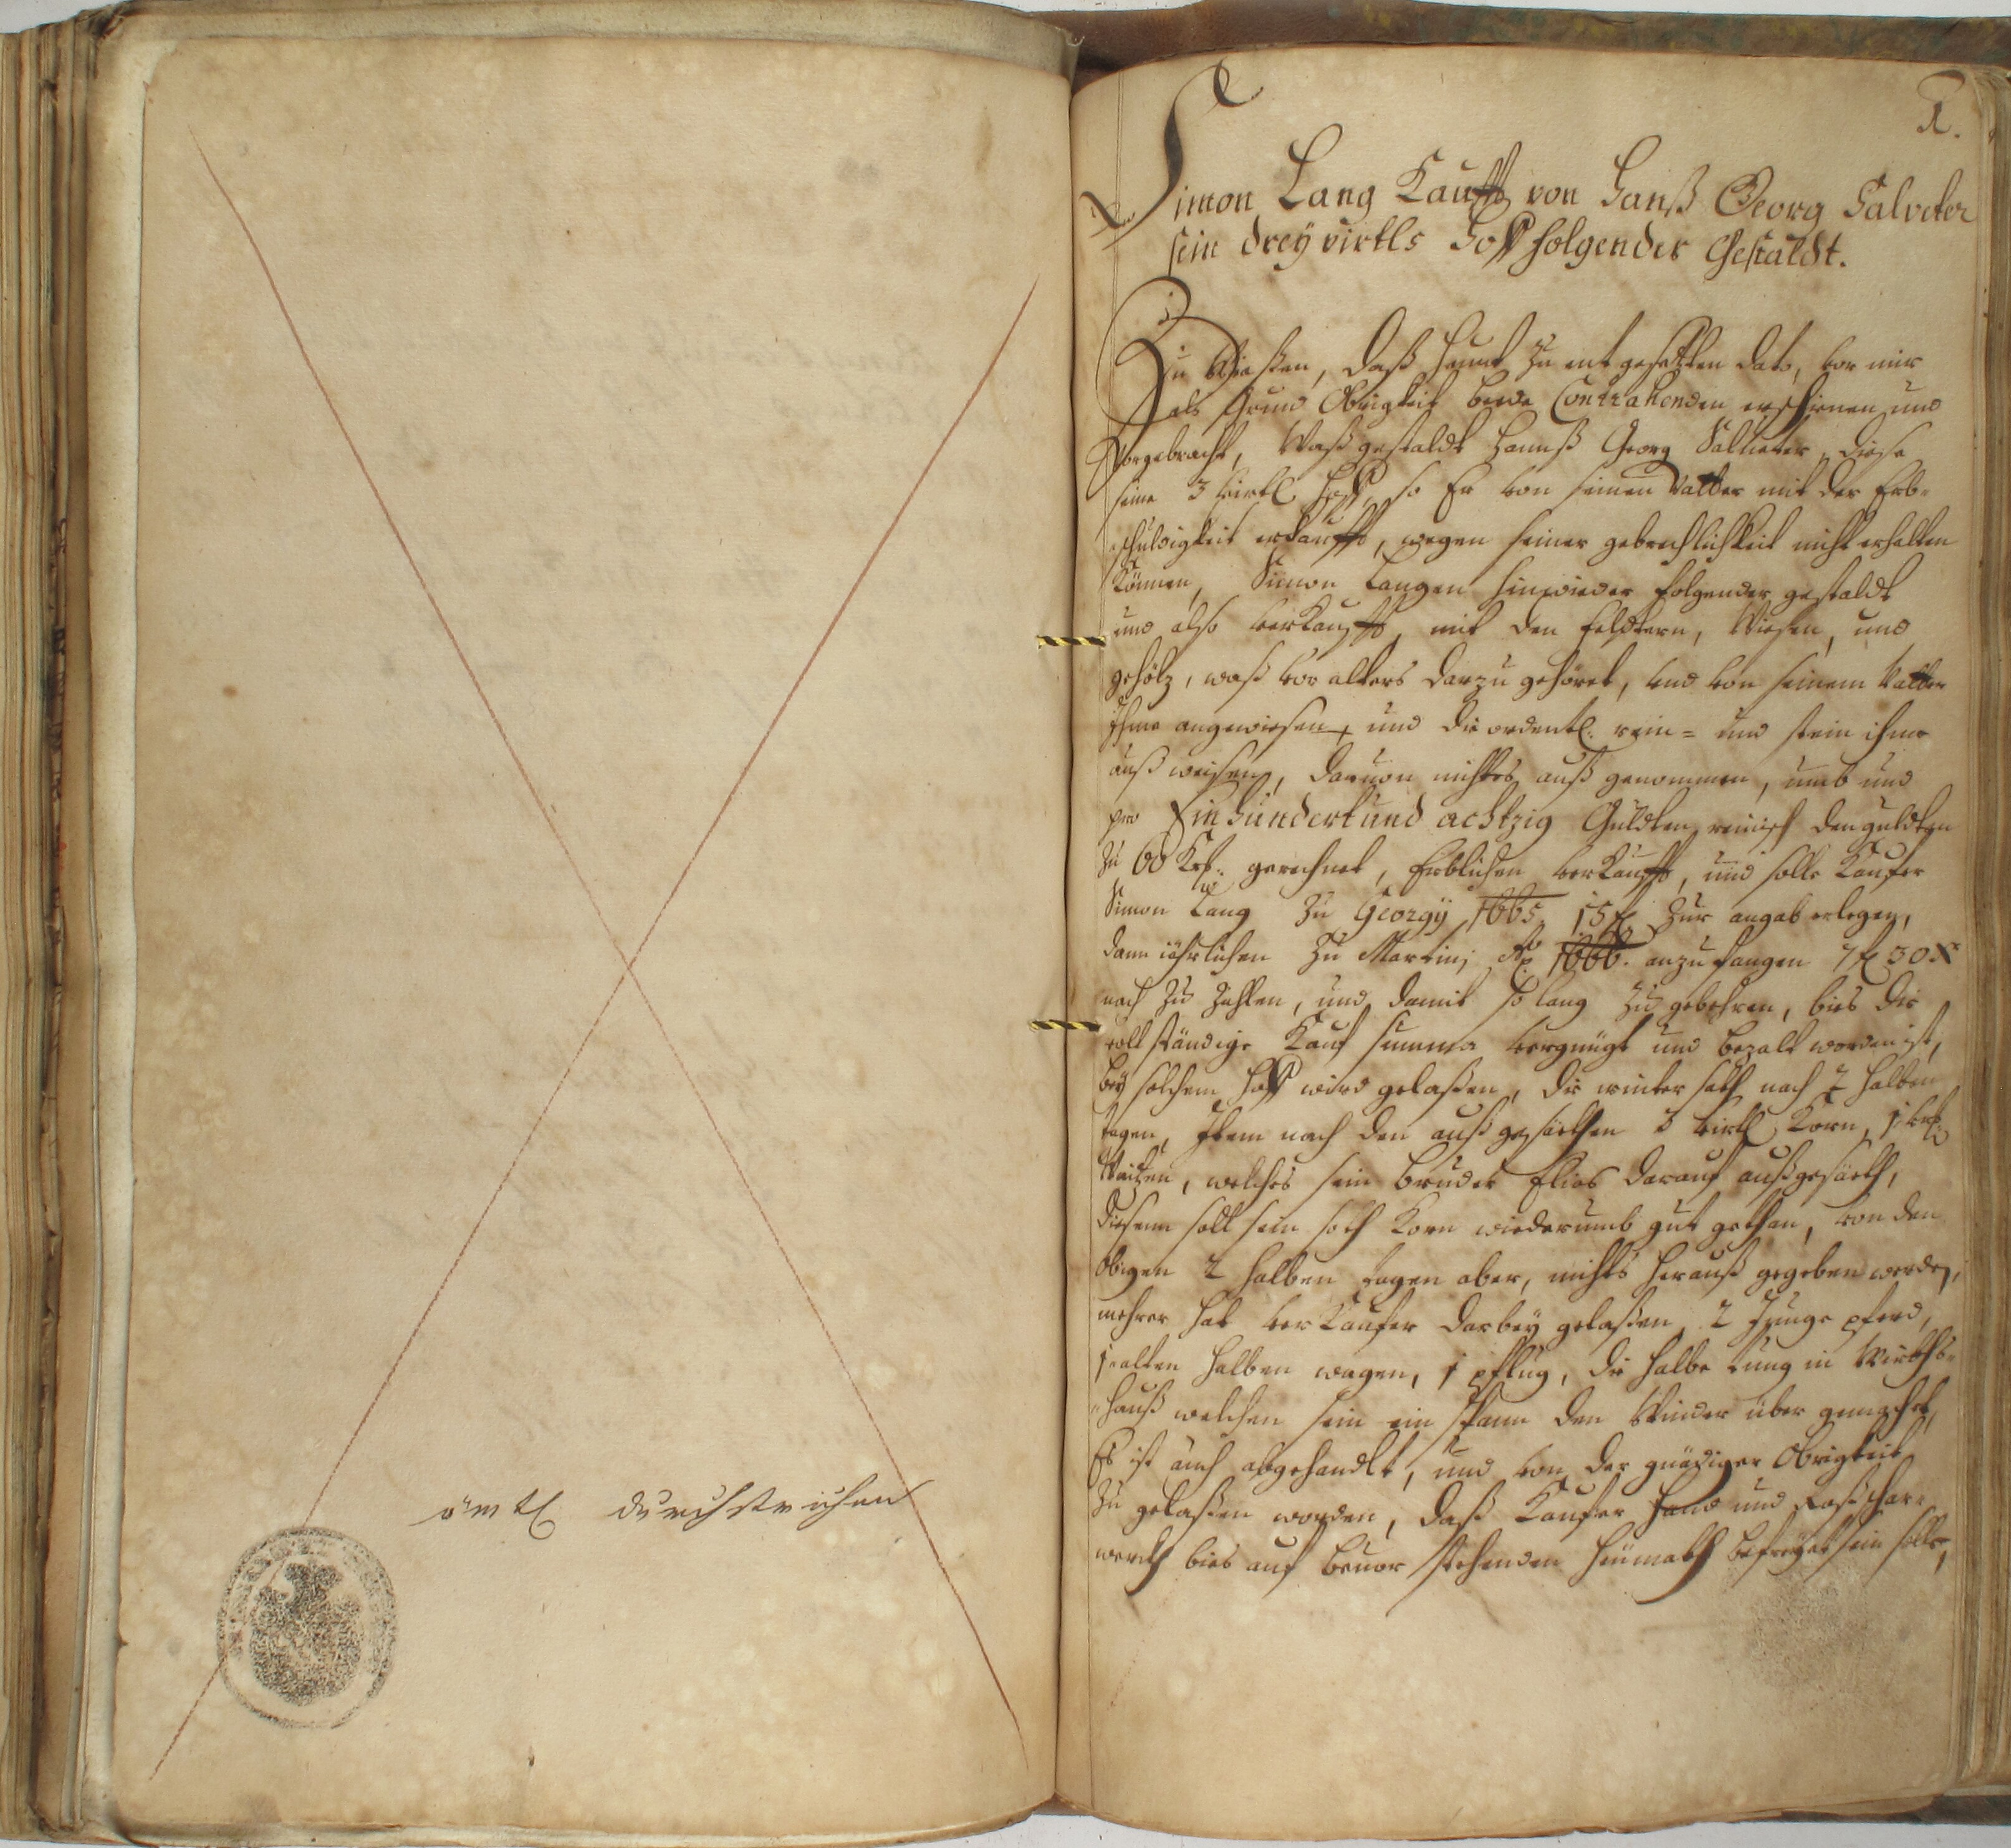 ämtl durchstrichen
1.
Simon Lang Kaufft von Hanß Georg Salveter
sein dreÿ virtls Hoff folgender Gestaldt.
Zu Wießen, daß heunt zu ent gesetzten dato, vor mir
als Grund Obrigkeit beede Contrahenden erschienen und
Vorgebracht, Waß gestaldt Hannß Georg Salveter, diese
seine 3 virtl Hoff, so Er von seinen Vatter mit der Erb-
schuldigkeit erkaufft, wegen seiner gebrechlichkeit nicht erhalten
können, Simon Langen hinwieder folgender gestaldt
und also verkaufft, mit den feldtern, Wiesen, und
gehölz, waß vor alters darzu gehöret, und von seinem Vatter
Ihme angewiesen, und die ordentl. rein= und stein ihme
außweisen, dauon nichtes auß genommen, umb und
pro Ein Hundert und achtzig Guldten reinisch den guldten
zu 60 Krz. gerechnet, Erblichen verkaufft, und solle Kaufer
Simon Lang zu Georgÿ 1665 15 fl zur angab erlegen,
dann iährlichen zu Martini Ao 1666. anzufangen 7 fl 30 x
nach zu zahlen, und damit so lang zu gebehren, bies die
vollständige Kauf summa vergnügt und bezalt worden ist,
beÿ solchem Hoff wird gelaßen, die winter sath nach 2 halben
tagen, Item nach den außgesäethen 3 virtl Korn, 1
Waitzen, welches sein bruder Elias darauf außgesäeth,
diesem soll sein soth Korn wiederumb gut gethan, von den
obigen 2 halben tagen aber, nichts herauß gegeben werden,
mehrer hat verkaufer darbeÿ gelaßen, 2 Junge pferd,
1 alten halben wagen, 1 pflug, die halbe tung in Wirths-
hauß welchen sein ein spann den Winder über gemachet,
Es ist auch abgehandlt, und von der gnädiger Obrigkeit
zu gelaßen worden, daß Kaufer Hand und Roß schar-
werch bies auf beuor stehenden heumath befreÿet sein solle,